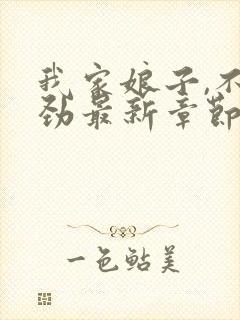 我家娘子,不
劲最新章節
一色鮎美